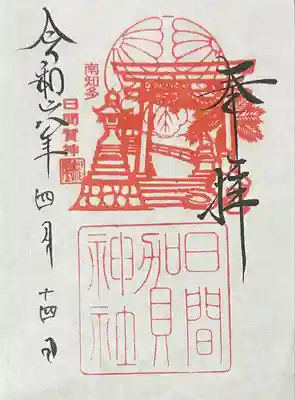 奉拝
南知多
日間賀神
日間
賀
神社
令和六年四月十四日